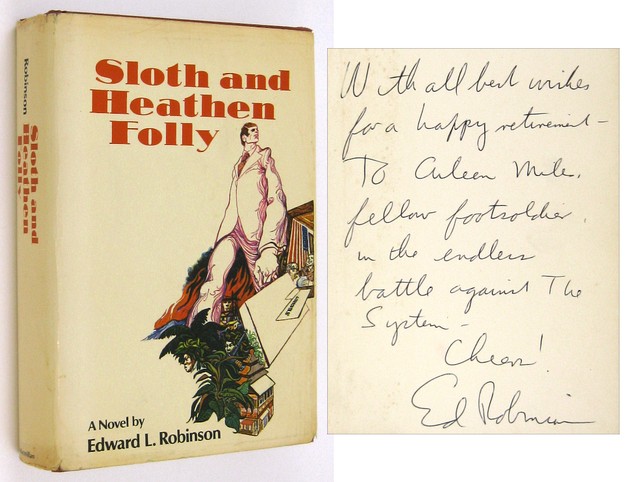 Robinson
Sloth and
Heathen
Folly
Sloth and
Heathen
Folly
A Novel by
Edward L. Robinson
With all best wishes
for a happy retirement –
To Aileen Miles,
fellow footsoldier,
in the endless
battle against The
System –
Cheers!
Ed Robinson